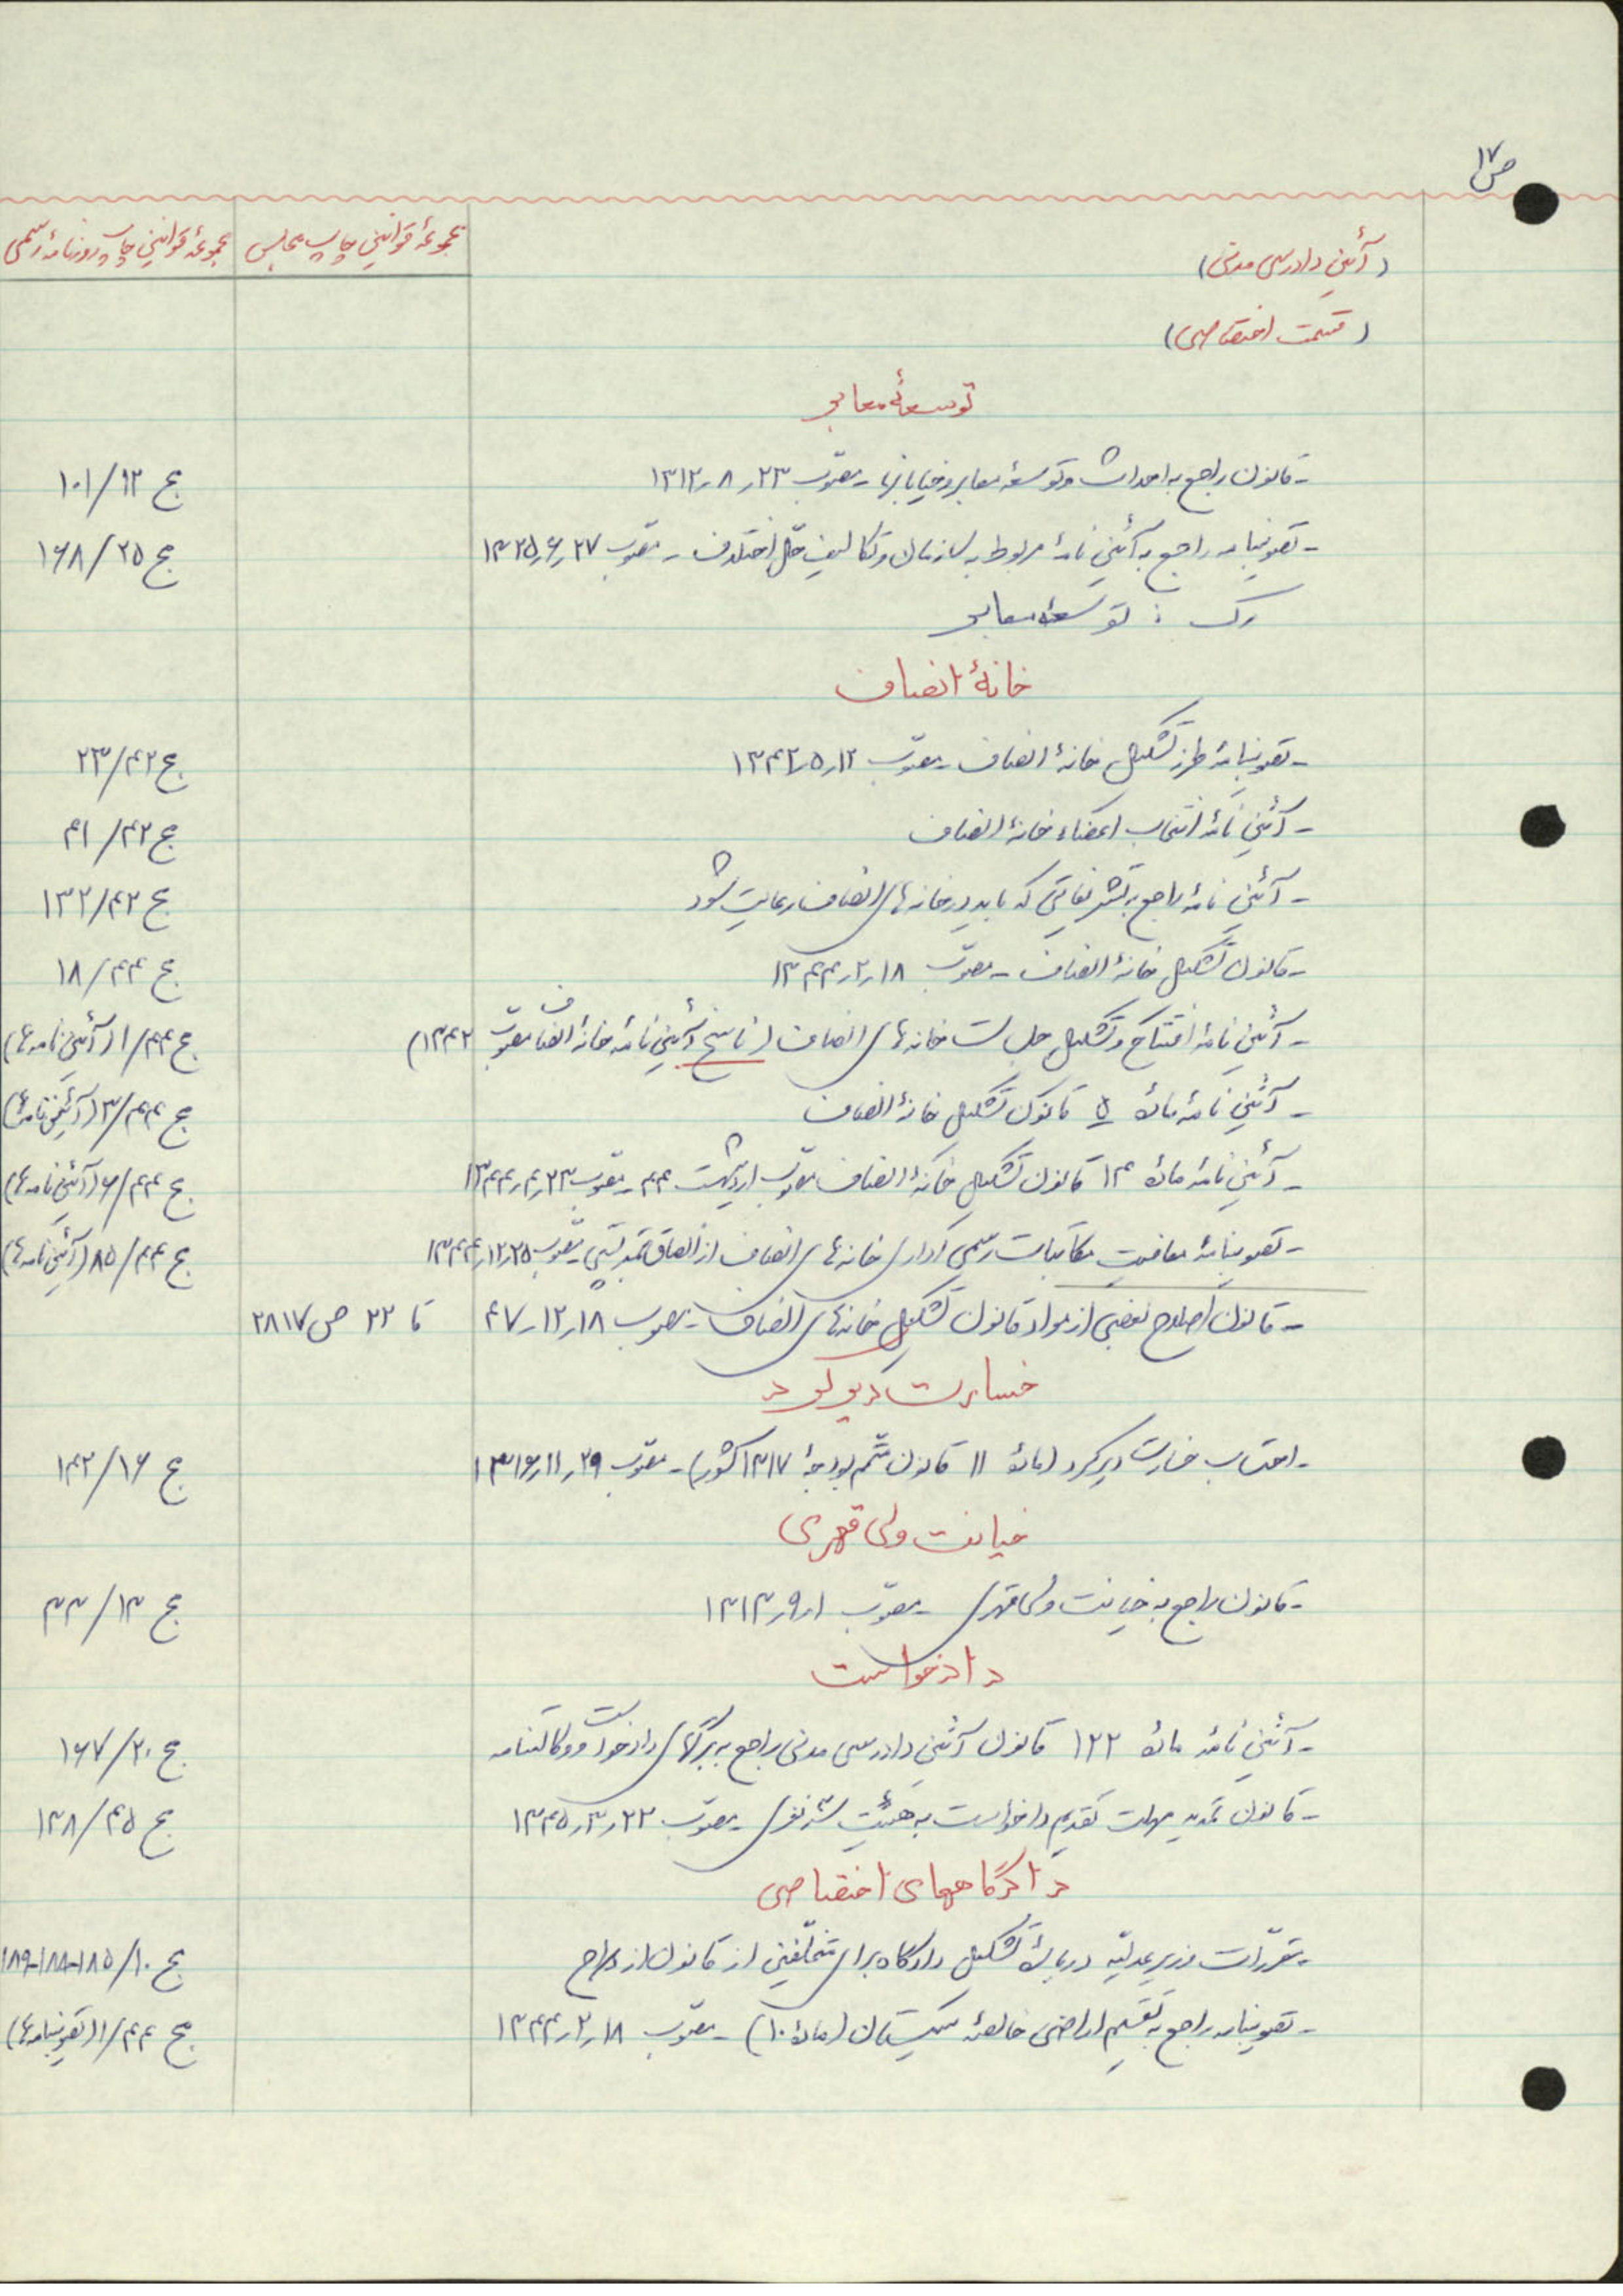 ص ۱۷
(آئین دادرسی مدنی) مجموعهٔ قوانین چاپ مجلس مجموعهٔ قوانین چاپ روزنامهٔ رسمی
(قسمت اختصاصی)
توسعهٔ معابر
- قانون راجع به احداث و توسعهٔ معابر و خیابانها - مصوّب ۲۳ر۸ر۱۳۱۲ ج ۱۲/۱۰۱
- تصویبنامه راجع به آئین نامهٔ مربوط به سازمان و تکالیف حلّ اختلاف - مصوّب ۲۷ر۶ر۱۳۲۵ ج ۲۵/۱۶۸
رک : توسعهٔ معابر
خانهٔ انصاف
- تصویبنامهٔ طرز تشکیل خانهٔ انصاف - مصوّب ۱۲ر۵ر۱۳۴۲ ج ۴۲/۲۳
- آئین نامهٔ انتخاب اعضاء خانهٔ انصاف ج ۴۲/۴۱
- آئین نامهٔ راجع به تشریفاتی که باید در خانه های انصاف رعایت شود ج ۴۲/۱۳۲
- قانون تشکیل خانهٔ انصاف - مصوّب ۱۸ر۲ر۱۳۴۴ ج ۴۴/۱۸
- آئین نامهٔ افتتاح و تشکیل جلسات خانه های انصاف (ناسخ آئین نامهٔ خانهٔ انصاف مصوّب ۱۳۴۲) ج ۴۴/۱ (آئین نامه ها)
- آئین نامهٔ مادهٔ ۵ قانون تشکیل خانهٔ انصاف ج ۴۴/۳ (آئین نامه ها)
- آئین نامهٔ مادهٔ ۱۴ قانون تشکیل خانهٔ انصاف مصوّب اردیبهشت ۴۴ - مصوّب ۲۳ر۴ر۱۳۴۴ ج ۴۴/۶ (آئین نامه ها)
- تصویبنامهٔ معافیت مکاتبات رسمی اداری خانه های انصاف از الصاق تمبر پستی - مصوّب ۲۵ر۱۲ر۱۳۴۴ ج ۴۴/۸۵ (آئین نامه ها)
- قانون اصلاح بعضی از مواد قانون تشکیل خانه های انصاف - مصوب ۱۸ر۱۲ر۴۷ تا ۲۲ ص ۲۸۱۷
خسارت دیرکرد
- احتساب خسارت دیرکرد (مادهٔ ۱۱ قانون متمّم بودجهٔ ۱۳۱۷ کشور) - مصوّب ۲۹ر۱۱ر۱۳۱۶ ج ۱۶/۱۴۲
خیانت ولی قهری
- قانون راجع به خیانت ولی قهری - مصوّب ۱ر۹ر۱۳۱۳ ج ۱۳/۳۳
دادخواست
- آئین نامهٔ مادهٔ ۱۲۲ قانون آئین دادرسی مدنی راجع به برگهای دادخواست و وکالتنامه ج ۲۰/۱۶۷
- قانون تمدید مهلت تقدیم دادخواست به هیئت سه نفری - مصوّب ۲۲ر۳ر۱۳۴۵ ج ۴۵/۱۳۸
دادگاههای اختصاصی
- مقرّرات وزیر عدلیّه دربارهٔ تشکیل دادگاه برای متخلّفین از قانون ازدواج ج ۱۰/۱۸۵-۱۸۸-۱۸۹
- تصویبنامه راجع به تقسیم اراضی خالصهٔ سیستان (مادهٔ ۱۰) - مصوّب ۱۸ر۲ر۱۳۴۴ ج ۴۴/۱ (تصویبنامه ها)